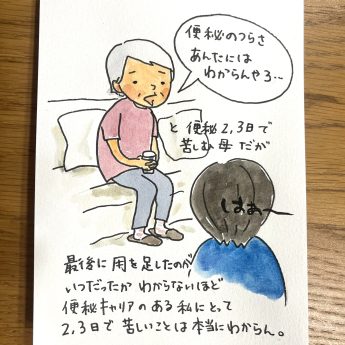 便秘のつらさ
あんたには
わからんやろ…
と 便秘2,3日で
苦しむ 母 だが
はぁ〜
最後に 用を足したのが
いつだったか わからないほど
便秘キャリアの ある 私にとって
2,3日で 苦しいことは 本当にわからん。